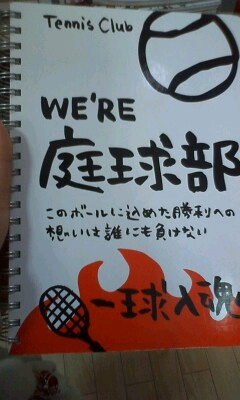 Tennis Club
WE'RE
庭球部
このボールに込めた勝利への
想いは誰にも負けない
一球入魂